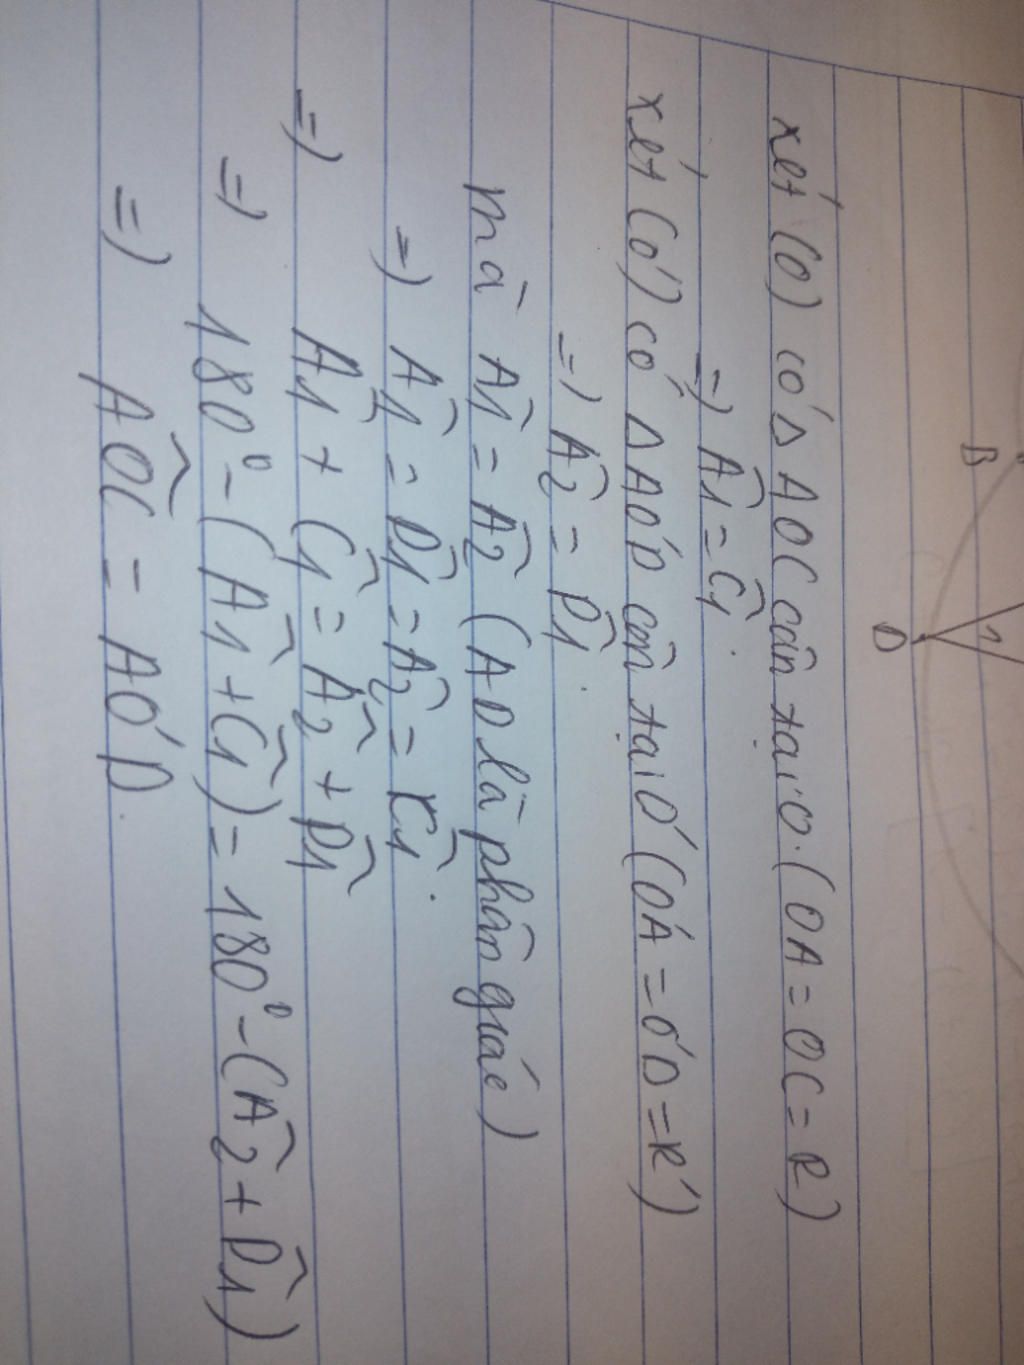 B
1
D
xét (O) có Δ AOC cân tại O. (OA = OC = R)
=) Â1 = Ĉ1.
xét (O') có Δ AO'D cân tại O' (O'A = O'D = R')
=) Â2 = D̂1.
mà Â1 = Â2 (AD là phân giác)
=) Â1 = D̂1 = Â2 = Ĉ1.
=) Â1 + Ĉ1 = Â2 + D̂1
=) 180° - (Â1 + Ĉ1) = 180° - (Â2 + D̂1)
=) AÔC = AO'D.